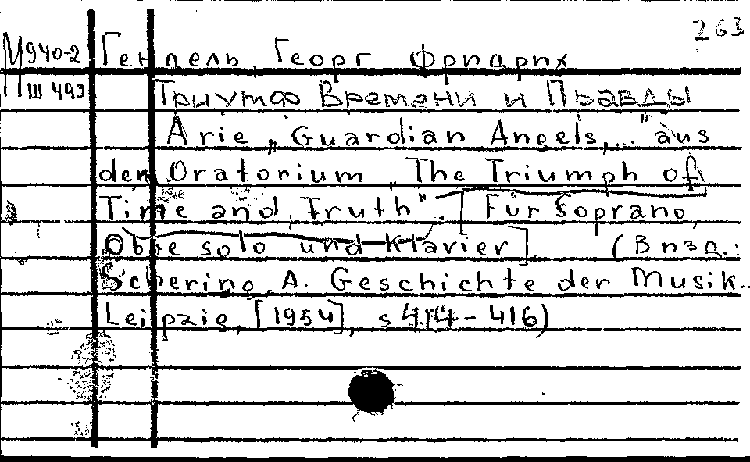 263
М940-2 Гендель, Георг Фридрих
III 493 Триумф Времени и Правды
Arie „Guardian Angels,..." aus
dem Oratorium „The Triumph of
Time and Truth". [Für Soprano,
Oboe solo und Klavier]. (В изд.:
Schering, A. Geschichte der Musik...
Leipzig, [1954], s 414-416)